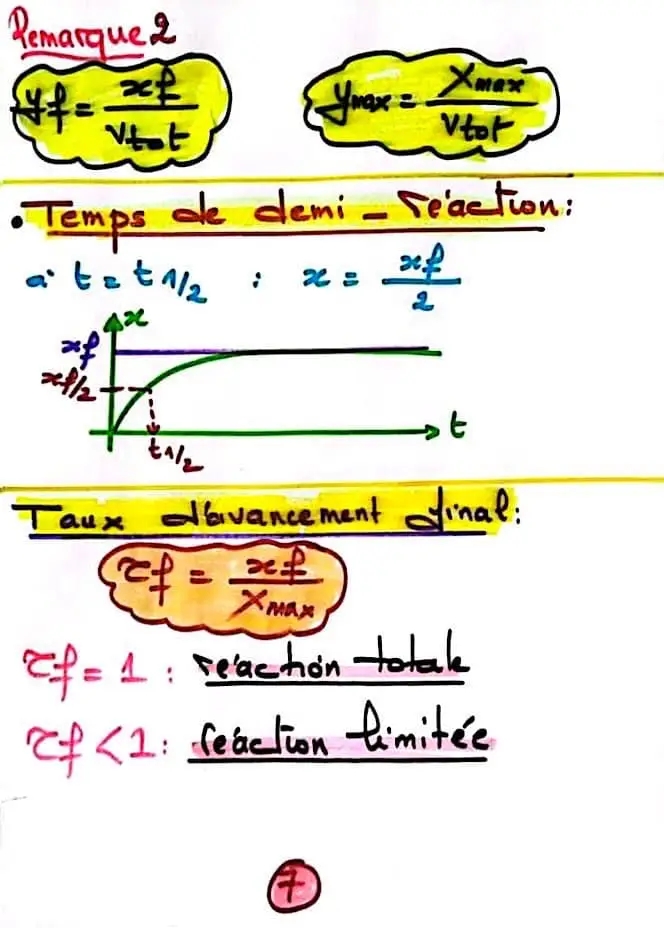 Remarque 2
yf = xf / Vtot    ymax = Xmax / Vtot
• Temps de demi - réaction:
à t = t1/2 : x = xf / 2
x
xf
xf/2
t
t1/2
Taux d'avancement final:
τf = xf / Xmax
τf = 1 : réaction totale
τf < 1 : réaction limitée
7